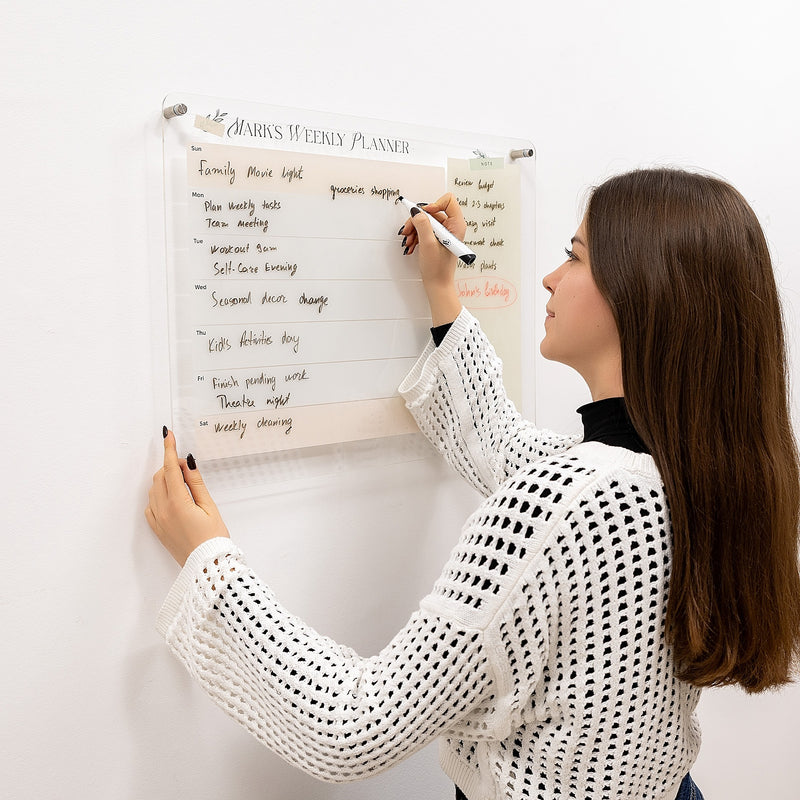 MARK'S WEEKLY PLANNER
Sun
Family Movie light
groceries shopping
Mon
Plan weekly tasks
Team meeting
Tue
Workout 9am
Self-Care Evening
Wed
Seasonal decor change
Thu
Kid's Activities day
Fri
Finish pending work
Theatre night
Sat
Weekly cleaning
NOTE
Review budget
2-3 chapters
visit
check
plants
John's Birthday